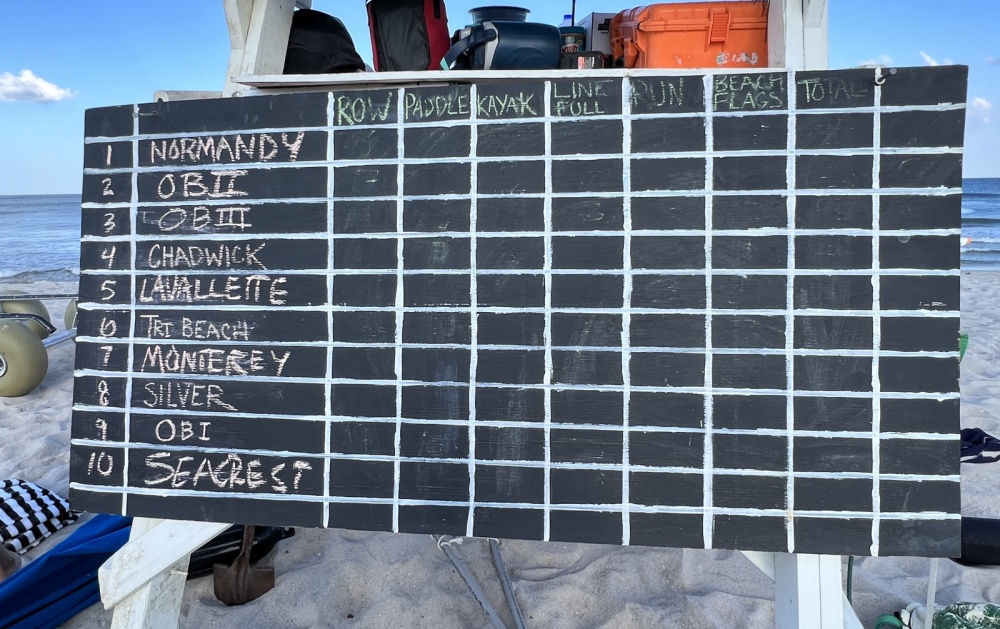 ROW PADDLE KAYAK LINE PULL RUN BEACH FLAGS TOTAL
1 NORMANDY
2 OBII
3 OBIII
4 CHADWICK
5 LAVALLETTE
6 TRI BEACH
7 MONTEREY
8 SILVER
9 OBI
10 SEACREST